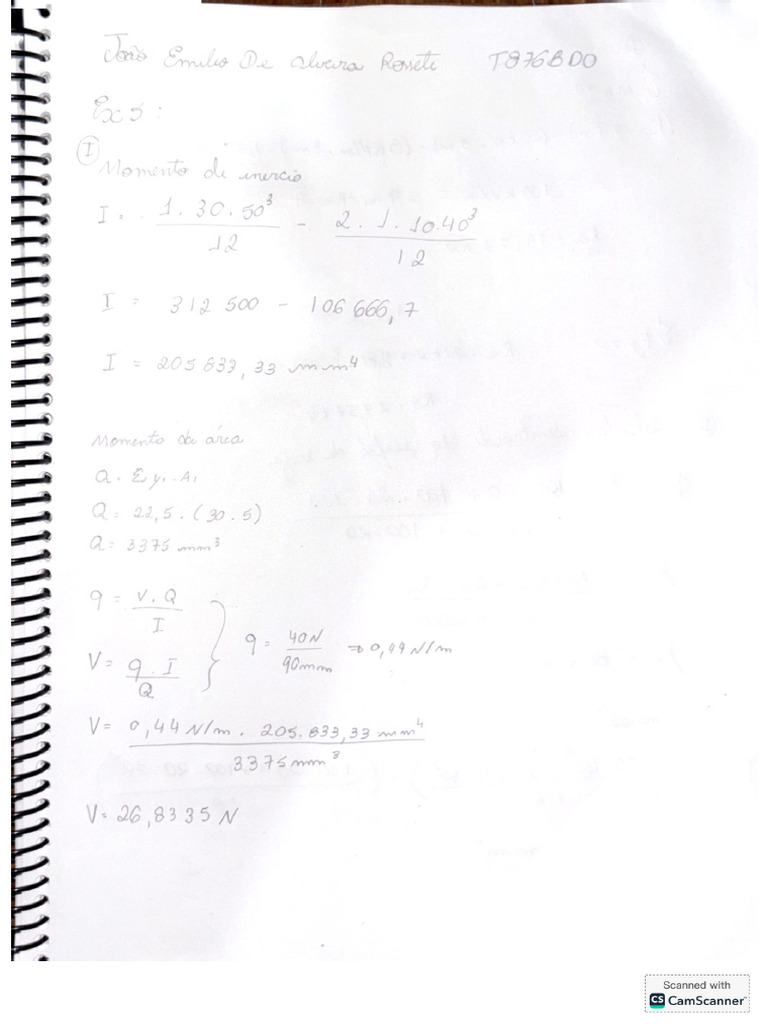 João Emilio De Oliveira Rossete T876BD0
Ex 5:
I
Momento de inercia
I = 1.30.50³/12 - 2.1.10.40³/12
I = 312 500 - 106 666,7
I = 205 833,33 mm⁴
Momento de área
Q = Σ y. A₁
Q = 22,5.(30.5)
Q = 3375 mm³
q = V.Q/I
V = q.I/Q } q = 40N/90mm ⇒ 0,44 N/m
V = 0,44 N/m . 205.833,33 mm⁴/3375 mm³
V = 26,8335 N
Scanned with
CS CamScanner